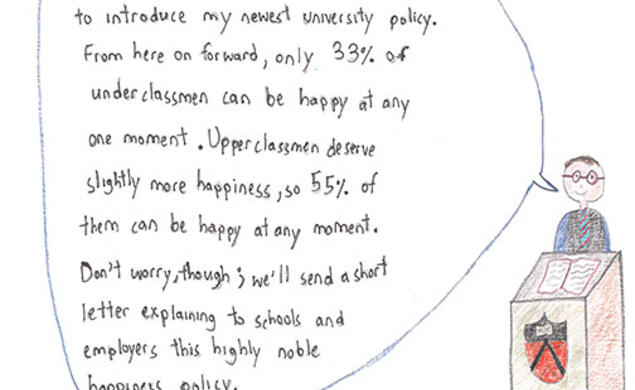 to introduce my newest university policy.
From here on forward, only 33% of
underclassmen can be happy at any
one moment. Upperclassmen deserve
slightly more happiness, so 55% of
them can be happy at any moment.
Don't worry, though; we'll send a short
letter explaining to schools and
employers this highly noble
happiness policy.